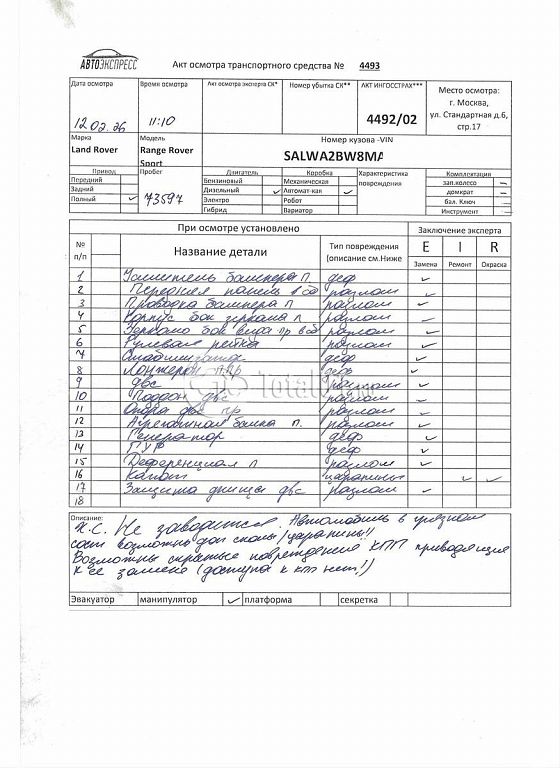 АВТОЭКСПРЕСС
Акт осмотра транспортного средства № 4493
Дата осмотра Время осмотра Акт осмотра эксперта СК* Номер убытка СК** АКТ ИНГОССТРАХ*** Место осмотра:
г. Москва,
ул. Стандартная д.6,
стр.17
12 02. 26 11:10 4492/02
Марка Модель Номер кузова -VIN
Land Rover Range Rover Sport SALWA2BW8MA
Привод Пробег Двигатель Коробка Характеристика повреждения Комплектация
Передний Бензиновый Механическая зап.колесо –
Задний Дизельный ✓ Автомат-кая ✓ домкрат –
Полный ✓ 73597 Электро Робот бал. Ключ –
Гибрид Вариатор Инструмент –
При осмотре установлено Заключение эксперта
№ п/п Название детали Тип повреждения (описание см.Ниже E I R
Замена Ремонт Окраска
1 Усилитель бампера п деф ✓
2 Передняя панель в сб разлом ✓
3 Проводка бампера п разлом ✓
4 Корпус бок зеркала п разлом ✓
5 Зеркало бок вида пр в сб разлом ✓
6 Рулевая рейка разлом ✓
7 деф ✓
8 Лонжерон ✓
9 двс разлом ✓
10 Поддон двс разлом ✓
11 Опора двс пр разлом ✓
12 Агрегатная балка п. разлом ✓
13 Генератор деф ✓
14 ГУР деф ✓
15 Деференциал п разлом ✓
16 Капот царапины ✓ ✓
17 Защита днища двс разлом ✓
18
Totalcar
Описание:
Не заводится. Автомобиль в грязном
сост возможны доп сколы/царапины!!
Возможны скрытые повреждения КПП приводящия
к её замене (доступа к кпп нет!)
Эвакуатор манипулятор ✓ платформа секретка